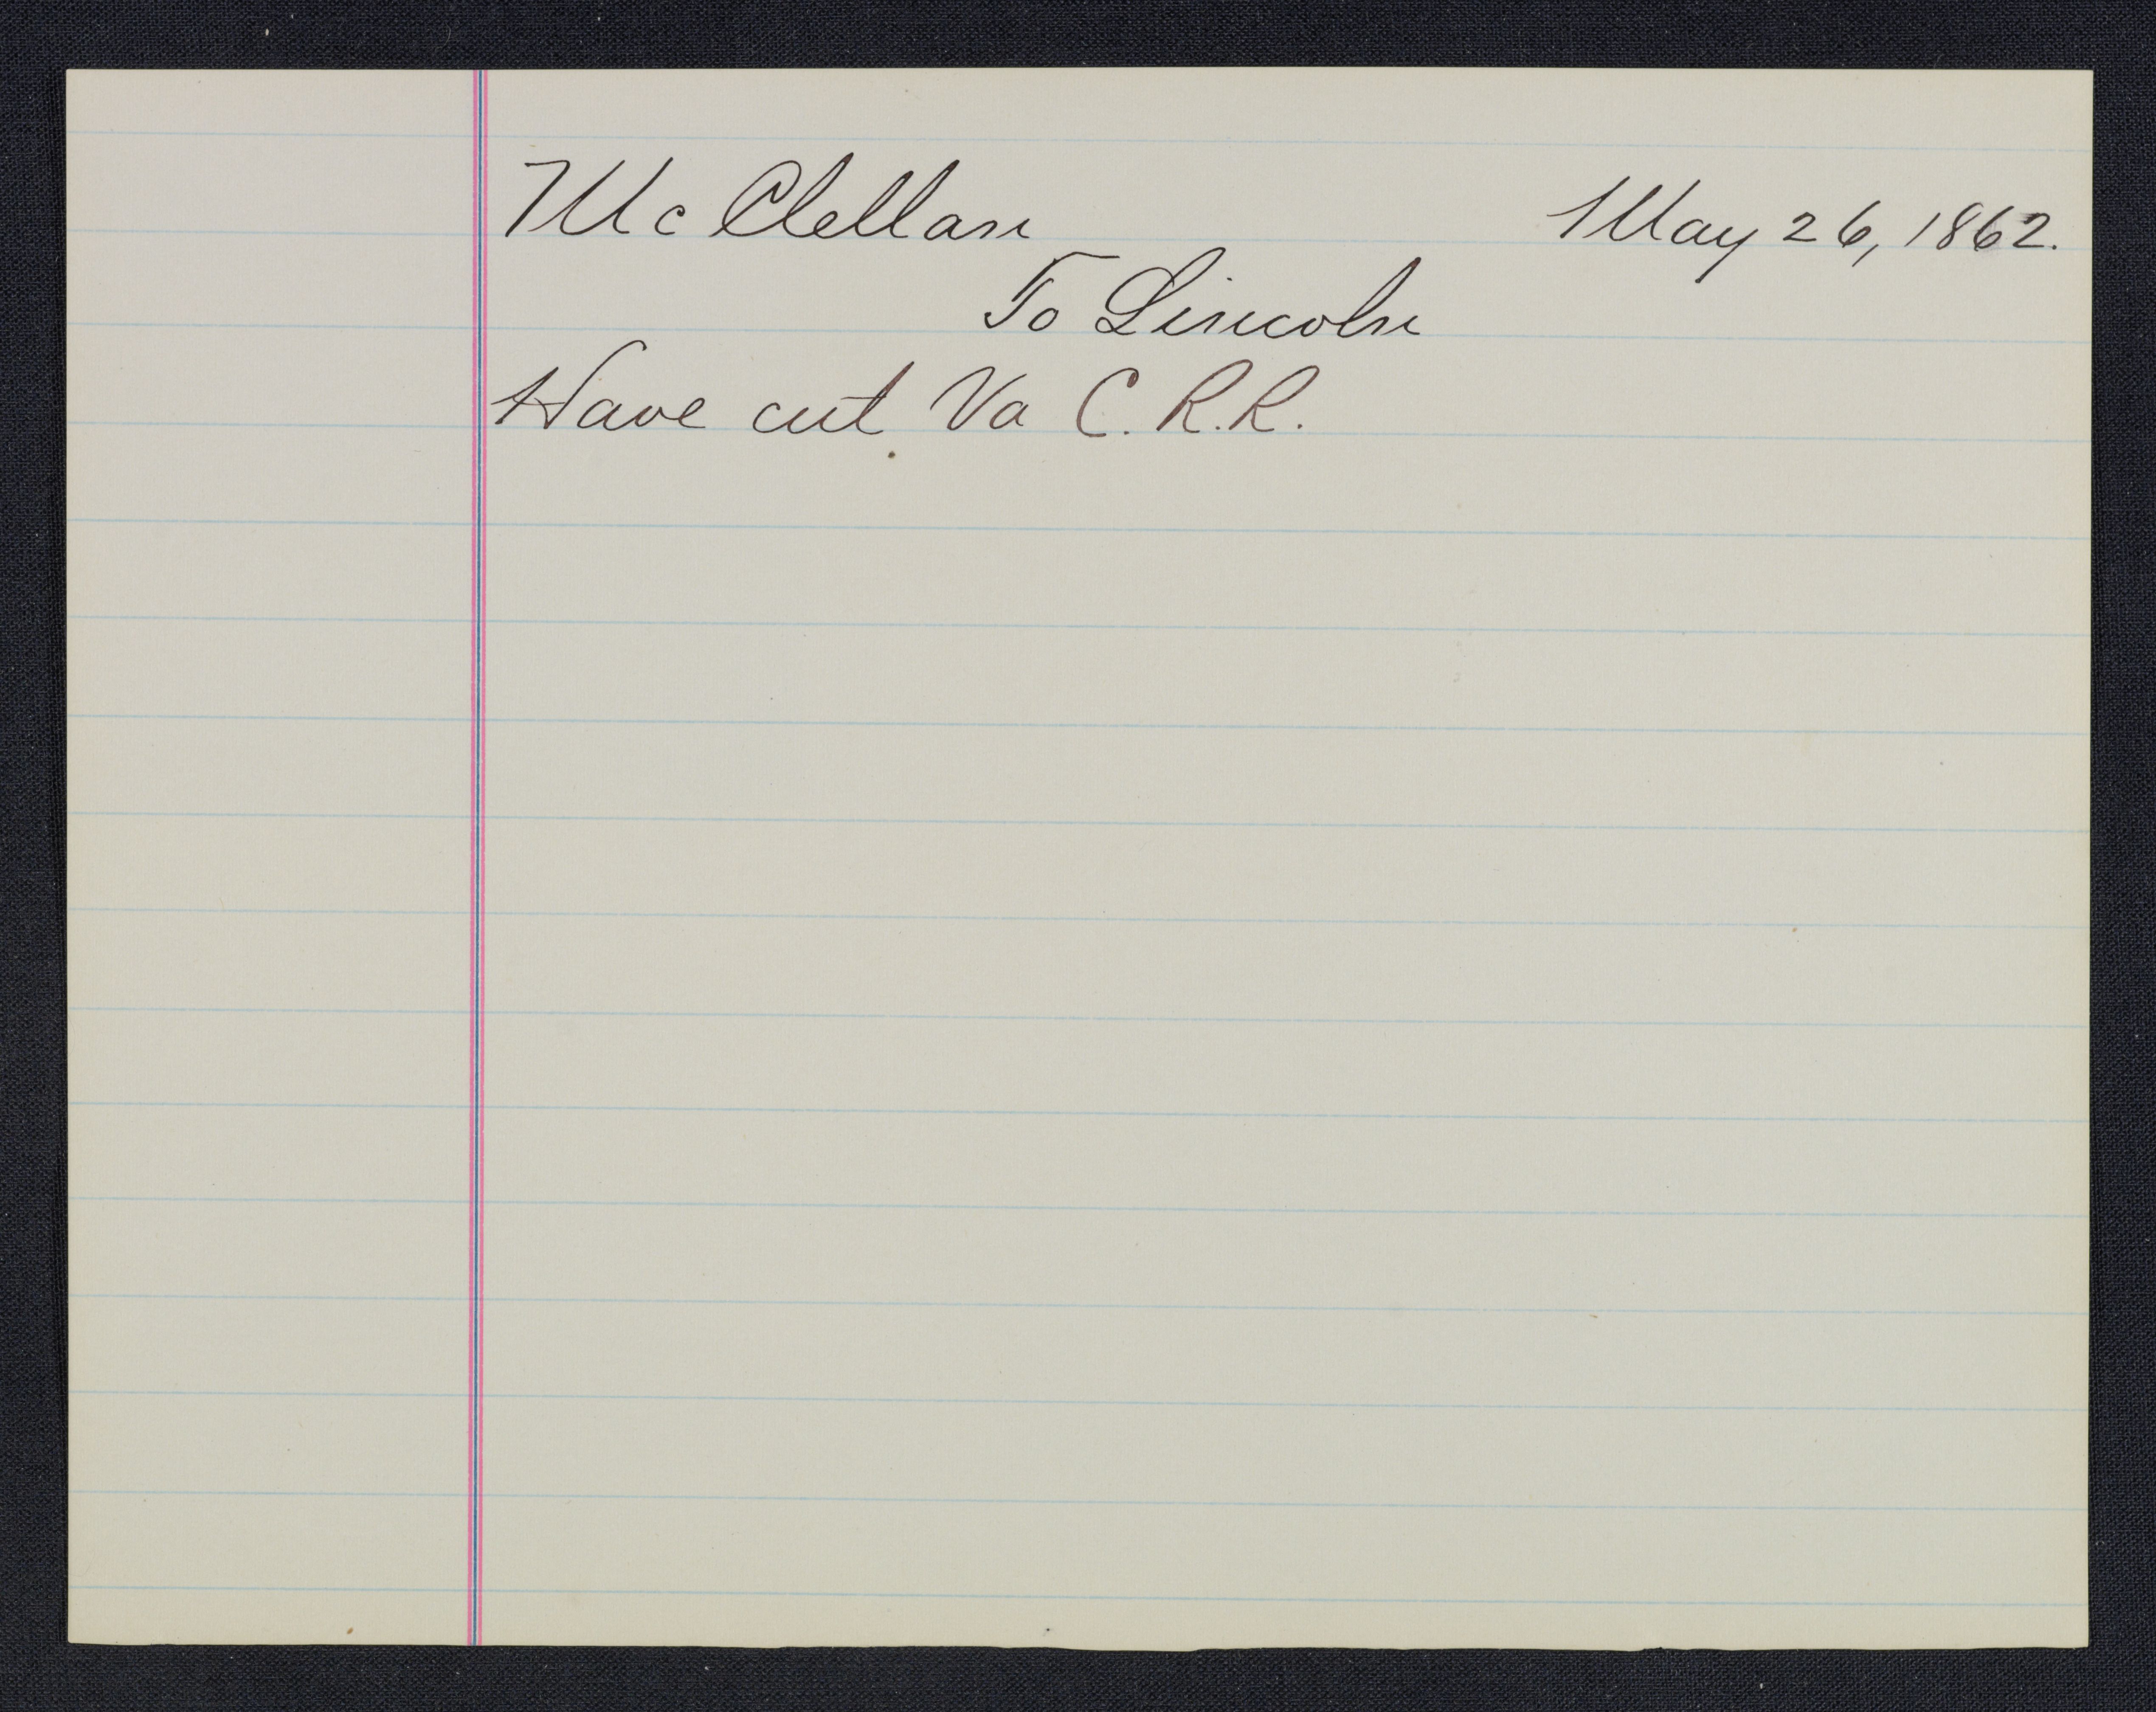 McClellan May 26, 1862.
To Lincoln
Have cut Va C. R.R.